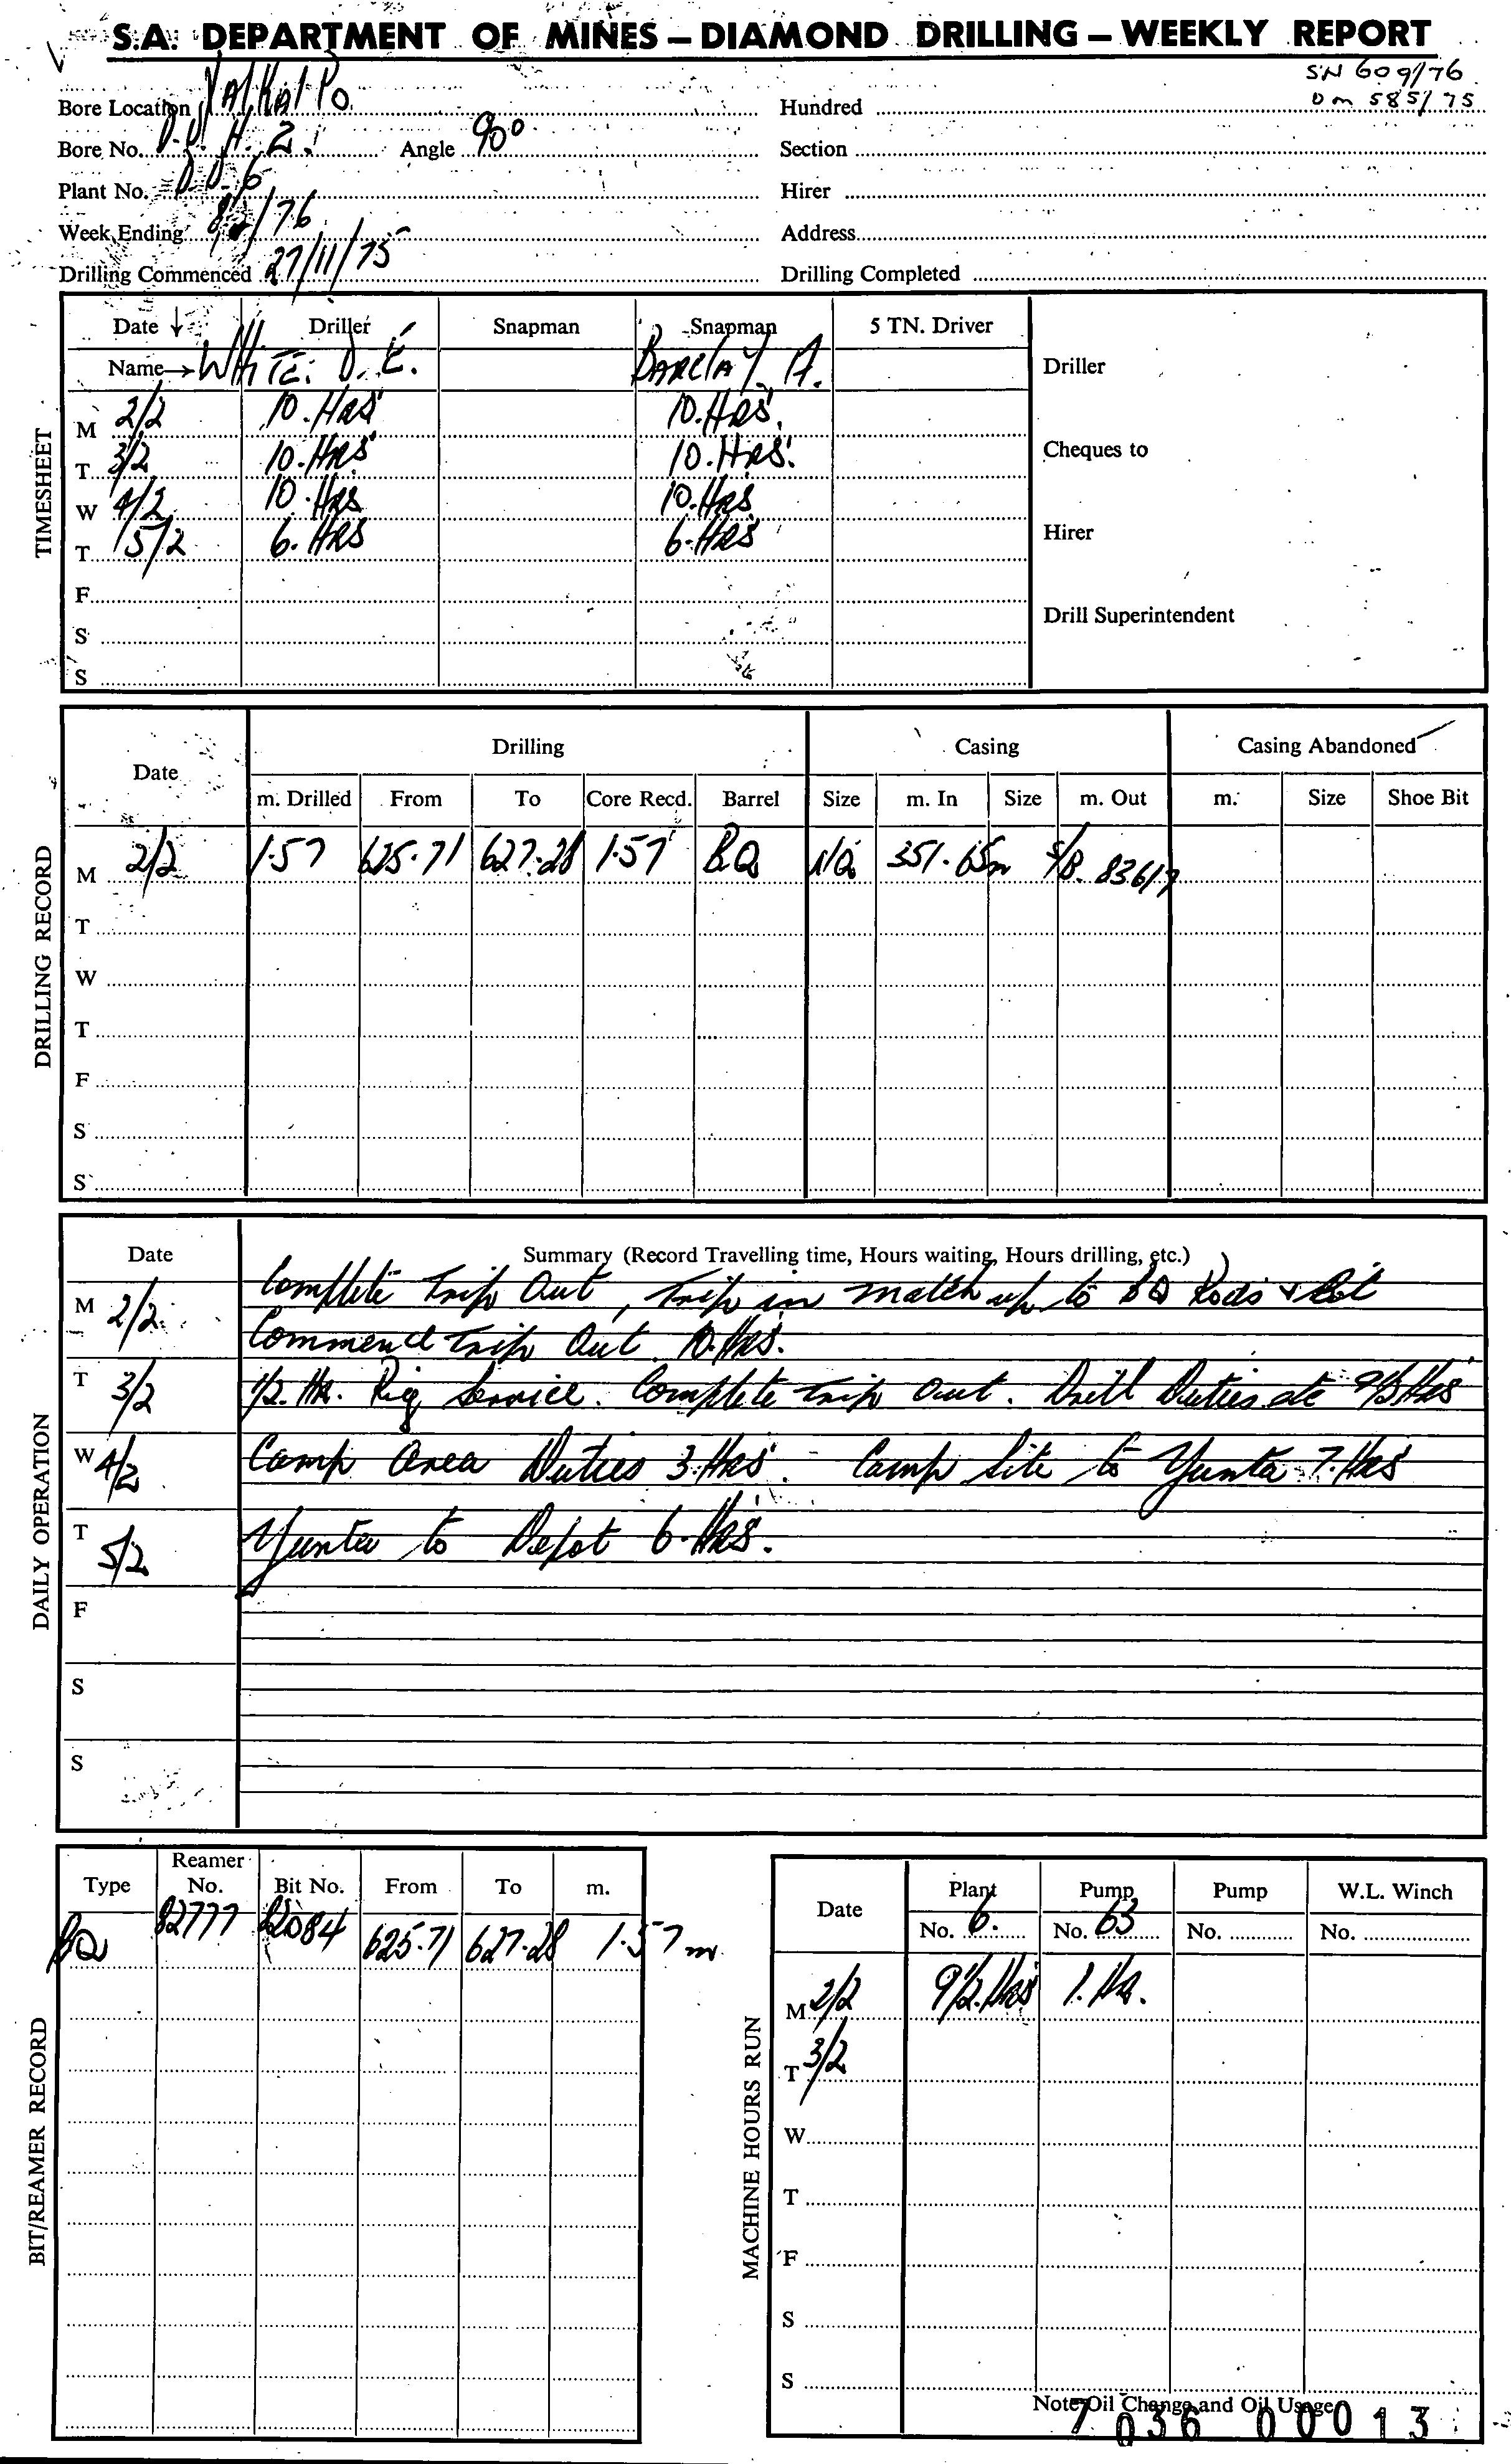 S.A. DEPARTMENT OF MINES – DIAMOND DRILLING – WEEKLY REPORT
SN 609/76
Bore Location Yalkalpo Hundred
DM 585/75
Bore No. D.D.H. 2. Angle 90°
Section
Plant No. D.D. 6
Hirer
Week Ending 8/2/76
Address
Drilling Commenced 27/11/75
Drilling Completed
TIMESHEET
Date ↓ Driller Snapman Snapman 5 TN. Driver
Name → WHITE. D.E. BARCLAY A.
Driller
M 2/2 10.HRS 10.HRS.
T 3/2 10.HRS 10.HRS.
Cheques to
W 4/2 10.HRS 10.HRS
T 5/2 6.HRS 6.HRS
Hirer
F
S
Drill Superintendent
S
DRILLING RECORD
Date Drilling Casing Casing Abandoned
m. Drilled From To Core Recd. Barrel Size m. In Size m. Out m. Size Shoe Bit
M 2/2 1.57 625.71 627.28 1.57 BQ NQ 351.65m S/B. 83617
T
W
T
F
S
S
DAILY OPERATION
Date Summary (Record Travelling time, Hours waiting, Hours drilling, etc.)
M 2/2 Complete Trip Out, Trip in match up to BQ Rods & Bit
Commence trip Out. 10.HRS.
T 3/2 1/2.HR. Rig Service. Complete trip Out. Drill Duties etc 9 1/2 HRS
W 4/2 Camp Area Duties 3.HRS. – Camp Site to Yunta 7.HRS
T 5/2 Yunta to Depot 6.HRS.
F
S
S
BIT/REAMER RECORD
Type Reamer No. Bit No. From To m.
BQ 82777 22084 625.71 627.28 1.57m
MACHINE HOURS RUN
Date Plant Pump Pump W.L. Winch
No. 6. No. 63 No. No.
M 2/2 9 1/2.HRS 1.HR.
T 3/2
W
T
F
S
S
Note Oil Change and Oil Usage
7036 00013